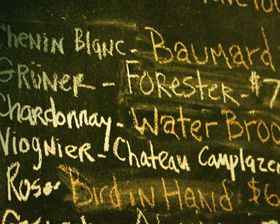 Chenin Blanc - Baumard
Grüner - Forester - $7
Chardonnay - Water Broo
Viognier - Chateau Camplazen
Rose Bird in Hand $6